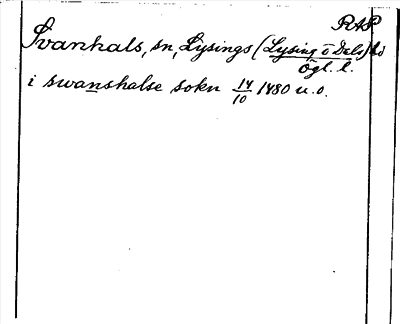 RAP
Svanhals, sn, Lysings (Lysing o Dals) hd
Ögl. l.
i swanshalse sokn 14/10 1480 u.o.